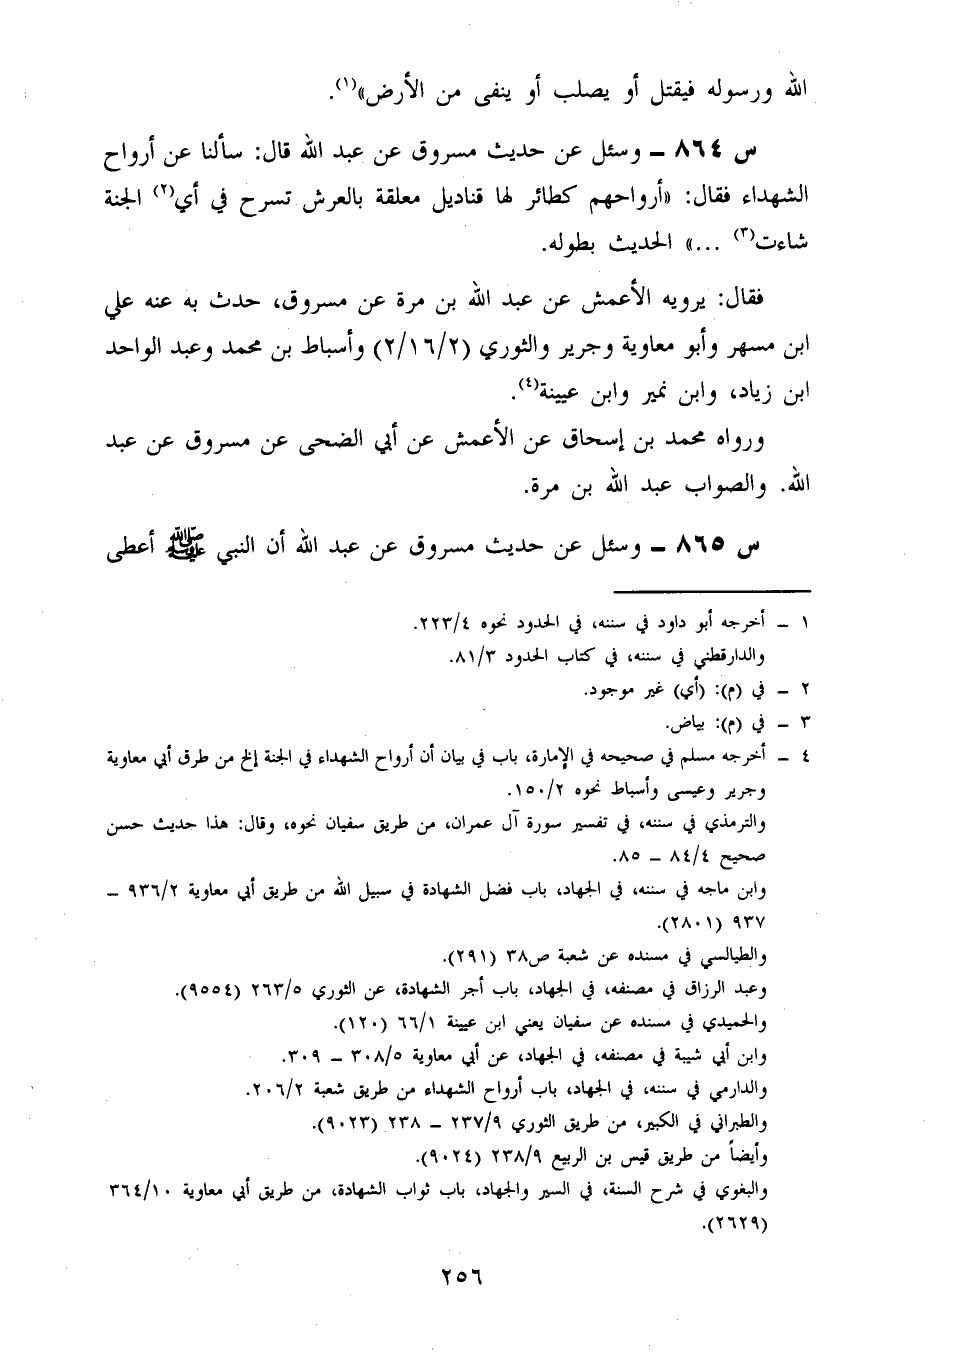 الله ورسوله فيقتل أو يصلب أو ينفى من الأرض»(١).
س ٨٦٤ ــ وسئل عن حديث مسروق عن عبد الله قال: سألنا عن أرواح
الشهداء فقال: «أرواحهم كطائر لها قناديل معلقة بالعرش تسرح في أي(٢) الجنة
شاءت(٣) ...» الحديث بطوله.
فقال: يرويه الأعمش عن عبد الله بن مرة عن مسروق، حدث به عنه علي
ابن مسهر وأبو معاوية وجرير والثوري (٢/١٦/٢) وأسباط بن محمد وعبد الواحد
ابن زياد، وابن نمير وابن عيينة(٤).
ورواه محمد بن إسحاق عن الأعمش عن أبي الضحى عن مسروق عن عبد
الله. والصواب عبد الله بن مرة.
س ٨٦٥ ــ وسئل عن حديث مسروق عن عبد الله أن النبي ﷺ أعطى
١ ــ أخرجه أبو داود في سننه، في الحدود نحوه ٢٢٣/٤.
والدارقطني في سننه، في كتاب الحدود ٨١/٣.
٢ ــ في (م): (أي) غير موجود.
٣ ــ في (م): بياض.
٤ ــ أخرجه مسلم في صحيحه في الإمارة، باب في بيان أن أرواح الشهداء في الجنة إلخ من طرق أبي معاوية
وجرير وعيسى وأسباط نحوه ١٥٠/٢.
والترمذي في سننه، في تفسير سورة آل عمران، من طريق سفيان نحوه، وقال: هذا حديث حسن
صحيح ٨٤/٤ ــ ٨٥.
وابن ماجه في سننه، في الجهاد، باب فضل الشهادة في سبيل الله من طريق أبي معاوية ٩٣٦/٢ ــ
٩٣٧ (٢٨٠١).
والطيالسي في مسنده عن شعبة ص٣٨ (٢٩١).
وعبد الرزاق في مصنفه، في الجهاد، باب أجر الشهادة، عن الثوري ٢٦٣/٥ (٩٥٥٤).
والحميدي في مسنده عن سفيان يعني ابن عيينة ٦٦/١ (١٢٠).
وابن أبي شيبة في مصنفه، في الجهاد، عن أبي معاوية ٣٠٨/٥ ــ ٣٠٩.
والدارمي في سننه، في الجهاد، باب أرواح الشهداء من طريق شعبة ٢٠٦/٢.
والطبراني في الكبير، من طريق الثوري ٢٣٧/٩ ــ ٢٣٨ (٩٠٢٣).
وأيضاً من طريق قيس بن الربيع ٢٣٨/٩ (٩٠٢٤).
والبغوي في شرح السنة، في السير والجهاد، باب ثواب الشهادة، من طريق أبي معاوية ٣٦٤/١٠
(٢٦٢٩).
٢٥٦